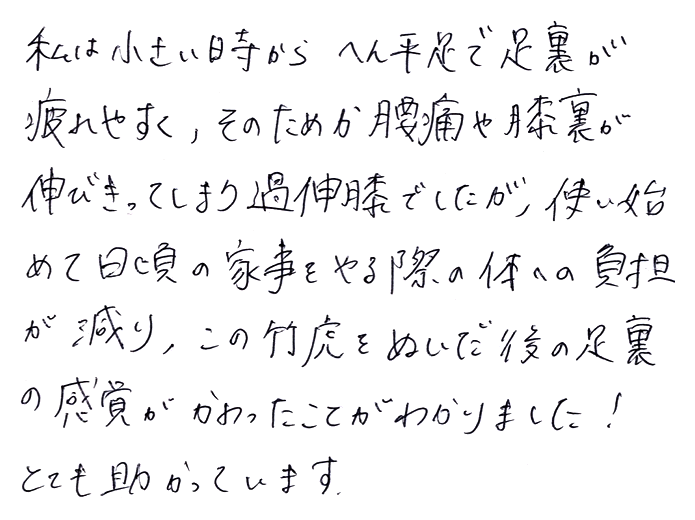 私は小さい時から へん平足で足裏が
疲れやすく，そのためか腰痛や膝裏が
伸びきってしまう過伸膝でしたが，使い始
めて日頃の家事をやる際の体への負担
が減り，この竹虎をぬいだ後の足裏
の感覚がかわったことがわかりました！
とても助かっています．